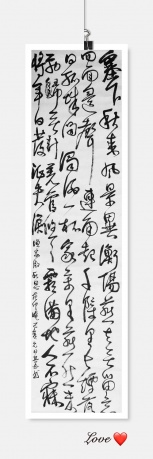 塞下秋来風景異衡陽雁去無留意
四面邊聲連角起千嶂里長煙落
日孤城閉濁酒一杯家萬里燕然未
勒歸無計羌管悠悠霜滿地人不寐
將軍白發征夫淚 漁家傲秋思范仲淹
Love ❤️